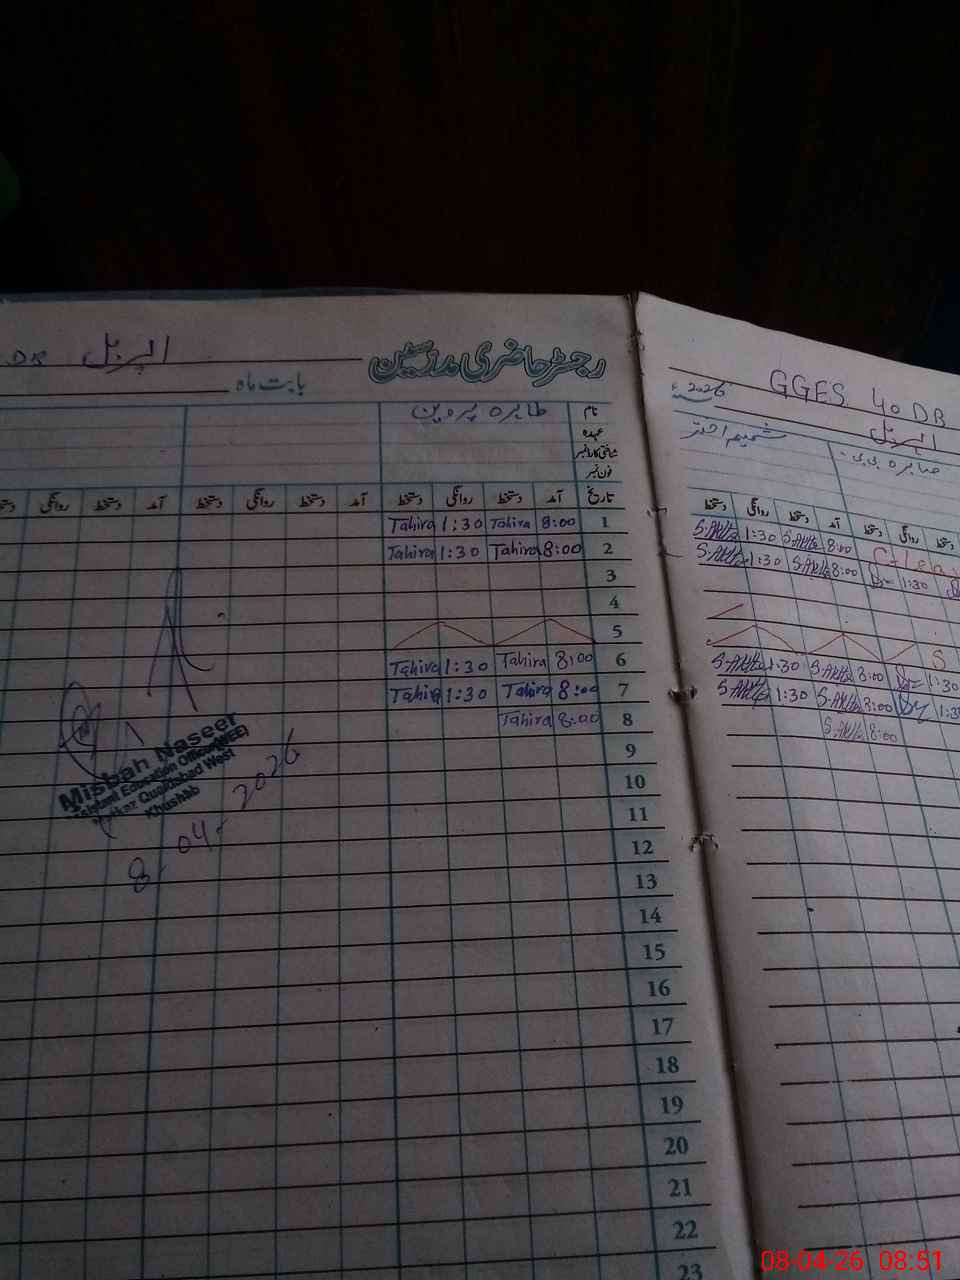 رجسٹر حاضری مدرسین
اپریل
بابت ماہ
نام
طاہرہ پروین
عہدہ
شناختی کارڈ نمبر
فون نمبر
تاریخ آمد دستخط روانگی دستخط آمد دستخط روانگی دستخط آمد دستخط روانگی
1 8:00 Tahira 1:30 Tahira
2 8:00 Tahira 1:30 Tahira
3
4
5
6 8:00 Tahira 1:30 Tahira
7 8:00 Tahira 1:30 Tahira
8 8:00 Tahira
9
10
11
12
13
14
15
16
17
18
19
20
21
22
23
Misbah Naseer
Assistant Education Officer(WEE)
Markaz Quaidabad West
Khushab
8-04-2026
GGES 40 DB
2026
اپریل
صابرہ بی بی
شمیم اختر
دستخط روانگی دستخط آمد دستخط روانگی دستخط
S.Akhtr 1:30 S.Akhtr 8:00
S.Akhtr 1:30 S.Akhtr 8:00 1:30
S
S.Akhtr 1:30 S.Akhtr 8:00 1:30
S.Akhtr 1:30 S.Akhtr 8:00
S.Akhtr 8:00
08-04-26 08:51